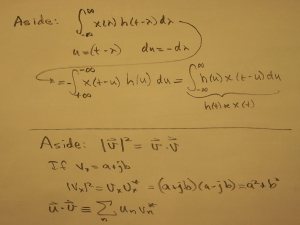 Aside: ∫_{-∞}^{∞} x(λ) h(t-λ) dλ
u = (t-λ) du = -dλ
= -∫_{+∞}^{-∞} x(t-u) h(u) du = ∫_{-∞}^{∞} h(u) x(t-u) du
h(t) * x(t)
Aside: |v⃗|² = v⃗ · v⃗
If Vₓ = a+jb
|Vₓ|² = VₓVₓ* = (a+jb)(a-jb) = a²+b²
u⃗ · v⃗ ≡ ∑_n uₙvₙ*